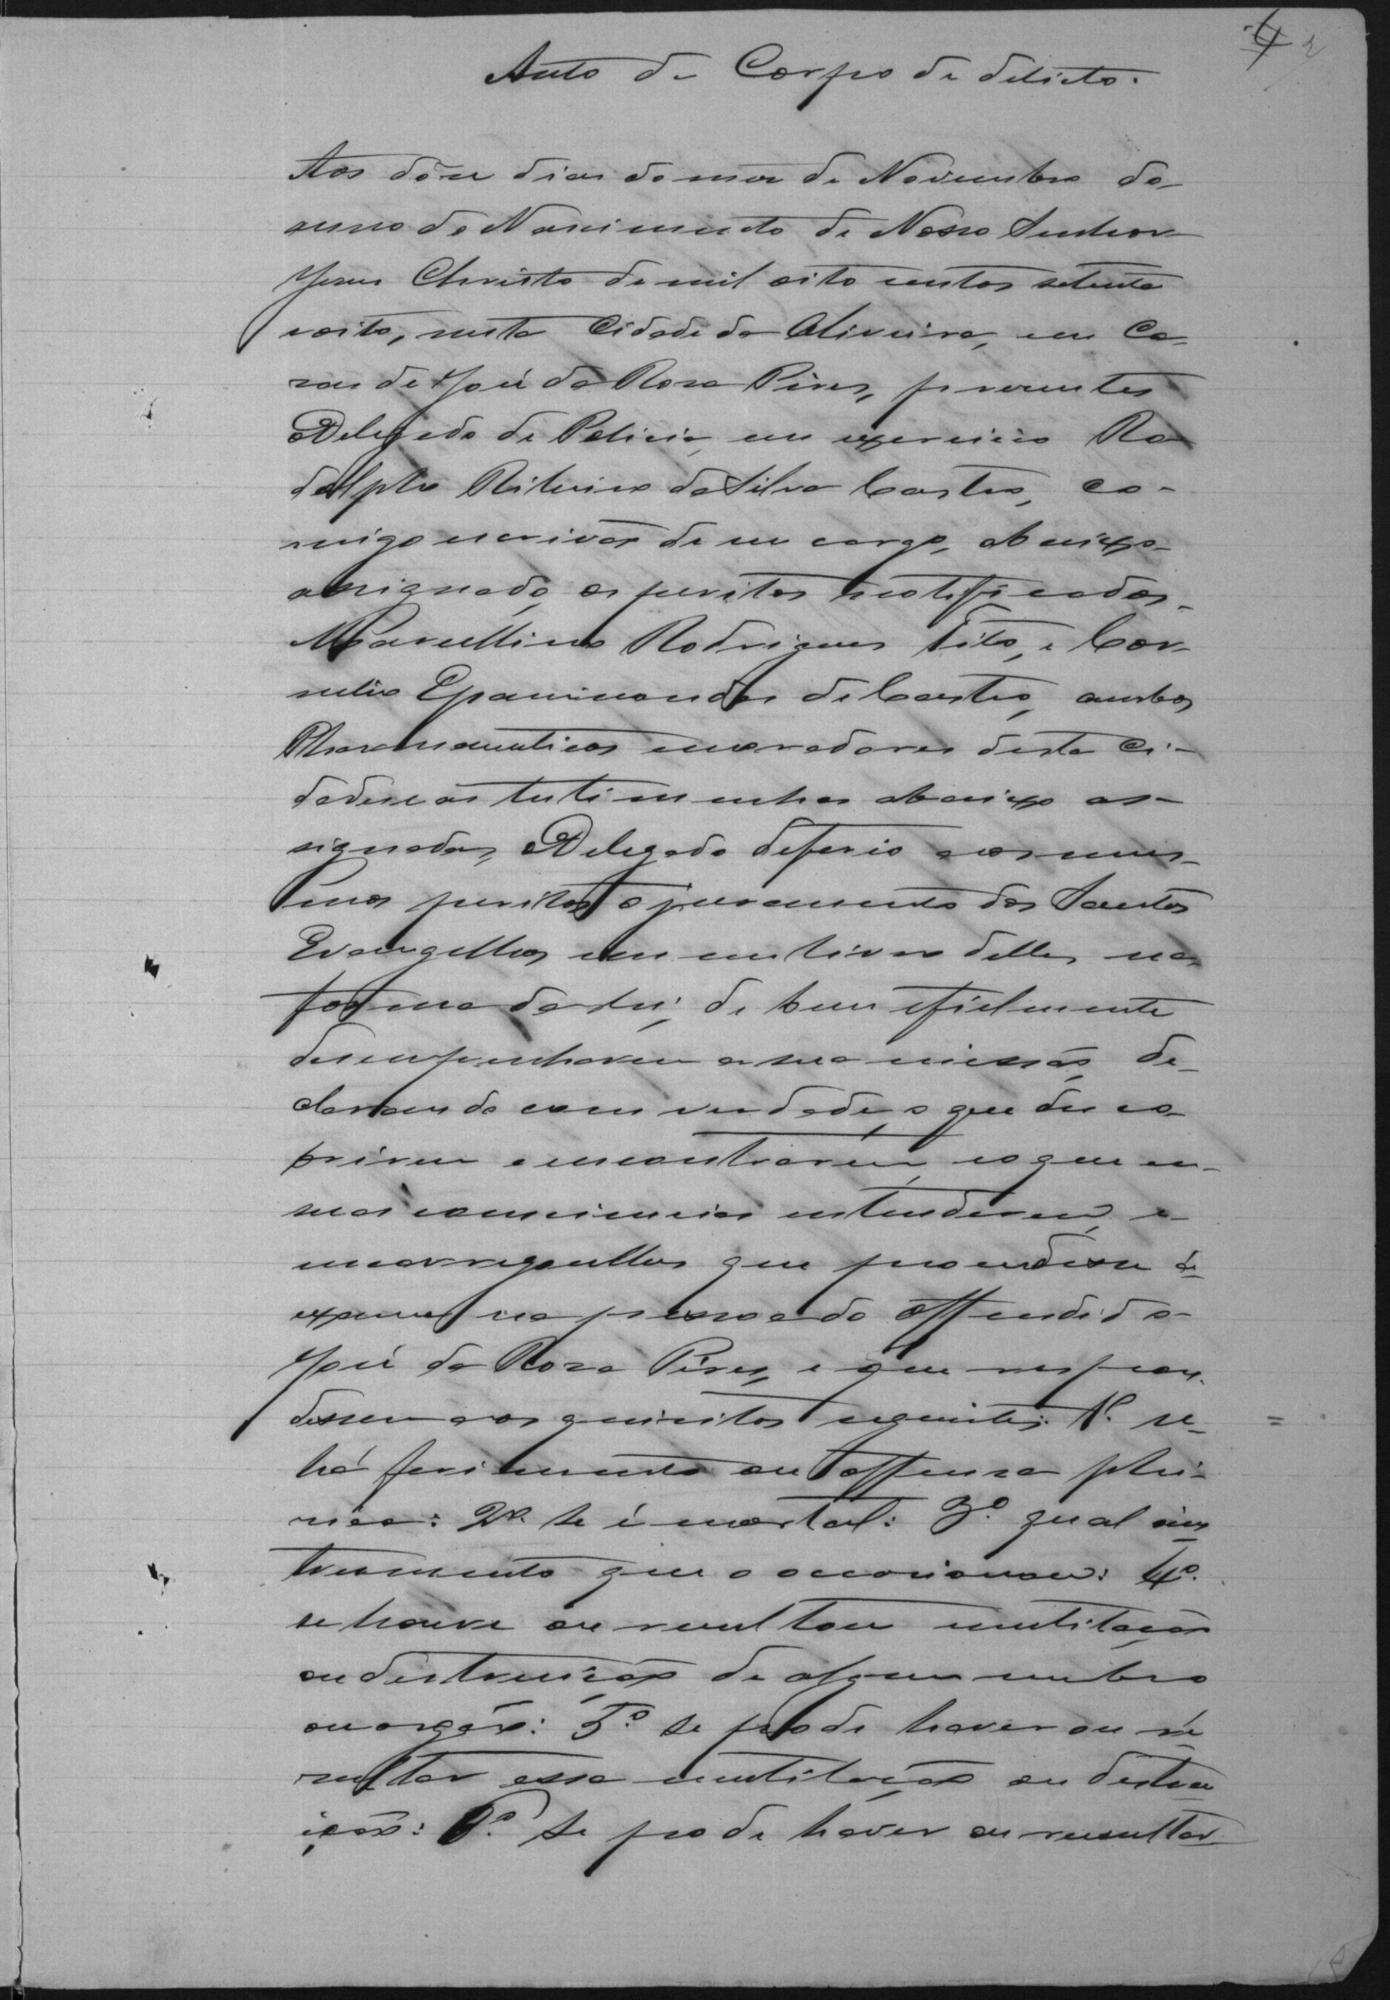 4 2
Auto de Corpo de delicto.
Aos dôse dias do mes de Novembro do
anno do Nascimento de Nosso Senhor
Jesus Christo de mil oito centos setenta
e oito, nesta Cidade da Oliveira, em Ca-
sas de José da Rosa Pires, presentes
o Delegado de Policia em exercicio Ro
dolpho Ribeiro da Silva Castro, co-
migo escrivão de seu cargo, abaixo
assignado, os peritos notificados,
Marcellino Rodrigues Tito, e Cor-
nelio Epaminondas de Castro, ambos
Pharmaceuticos moradores desta Ci-
dade e as testimunhas abaixo as-
signadas, o Delegado deferio aos mes-
mos peritos o juramento dos Santos
Evangelhos em um livro delles na
forma da Lei, de bem e fielmente
desempenharem a sua missão, de-
clarando com verdade, o que desco
brirem e encontrarem, e o que em
suas consciencias entenderem, e
encarregou lhes que procedessem á
exame na pessoa do offendido
José da Rosa Pires, e que respon-
dessem aos quesitos seguintes: 1º. se
há ferimento ou offensa phi-
sica: 2º. se é mortal: 3º. qual ins
trumento que o occasionou: 4º.
se houve ou resultou mutilação
ou destruição de algum membro
ou orgão: 5º. se pode haver ou re
sultar essa mutilação ou destru
ição: 6º. se pode haver ou resultar